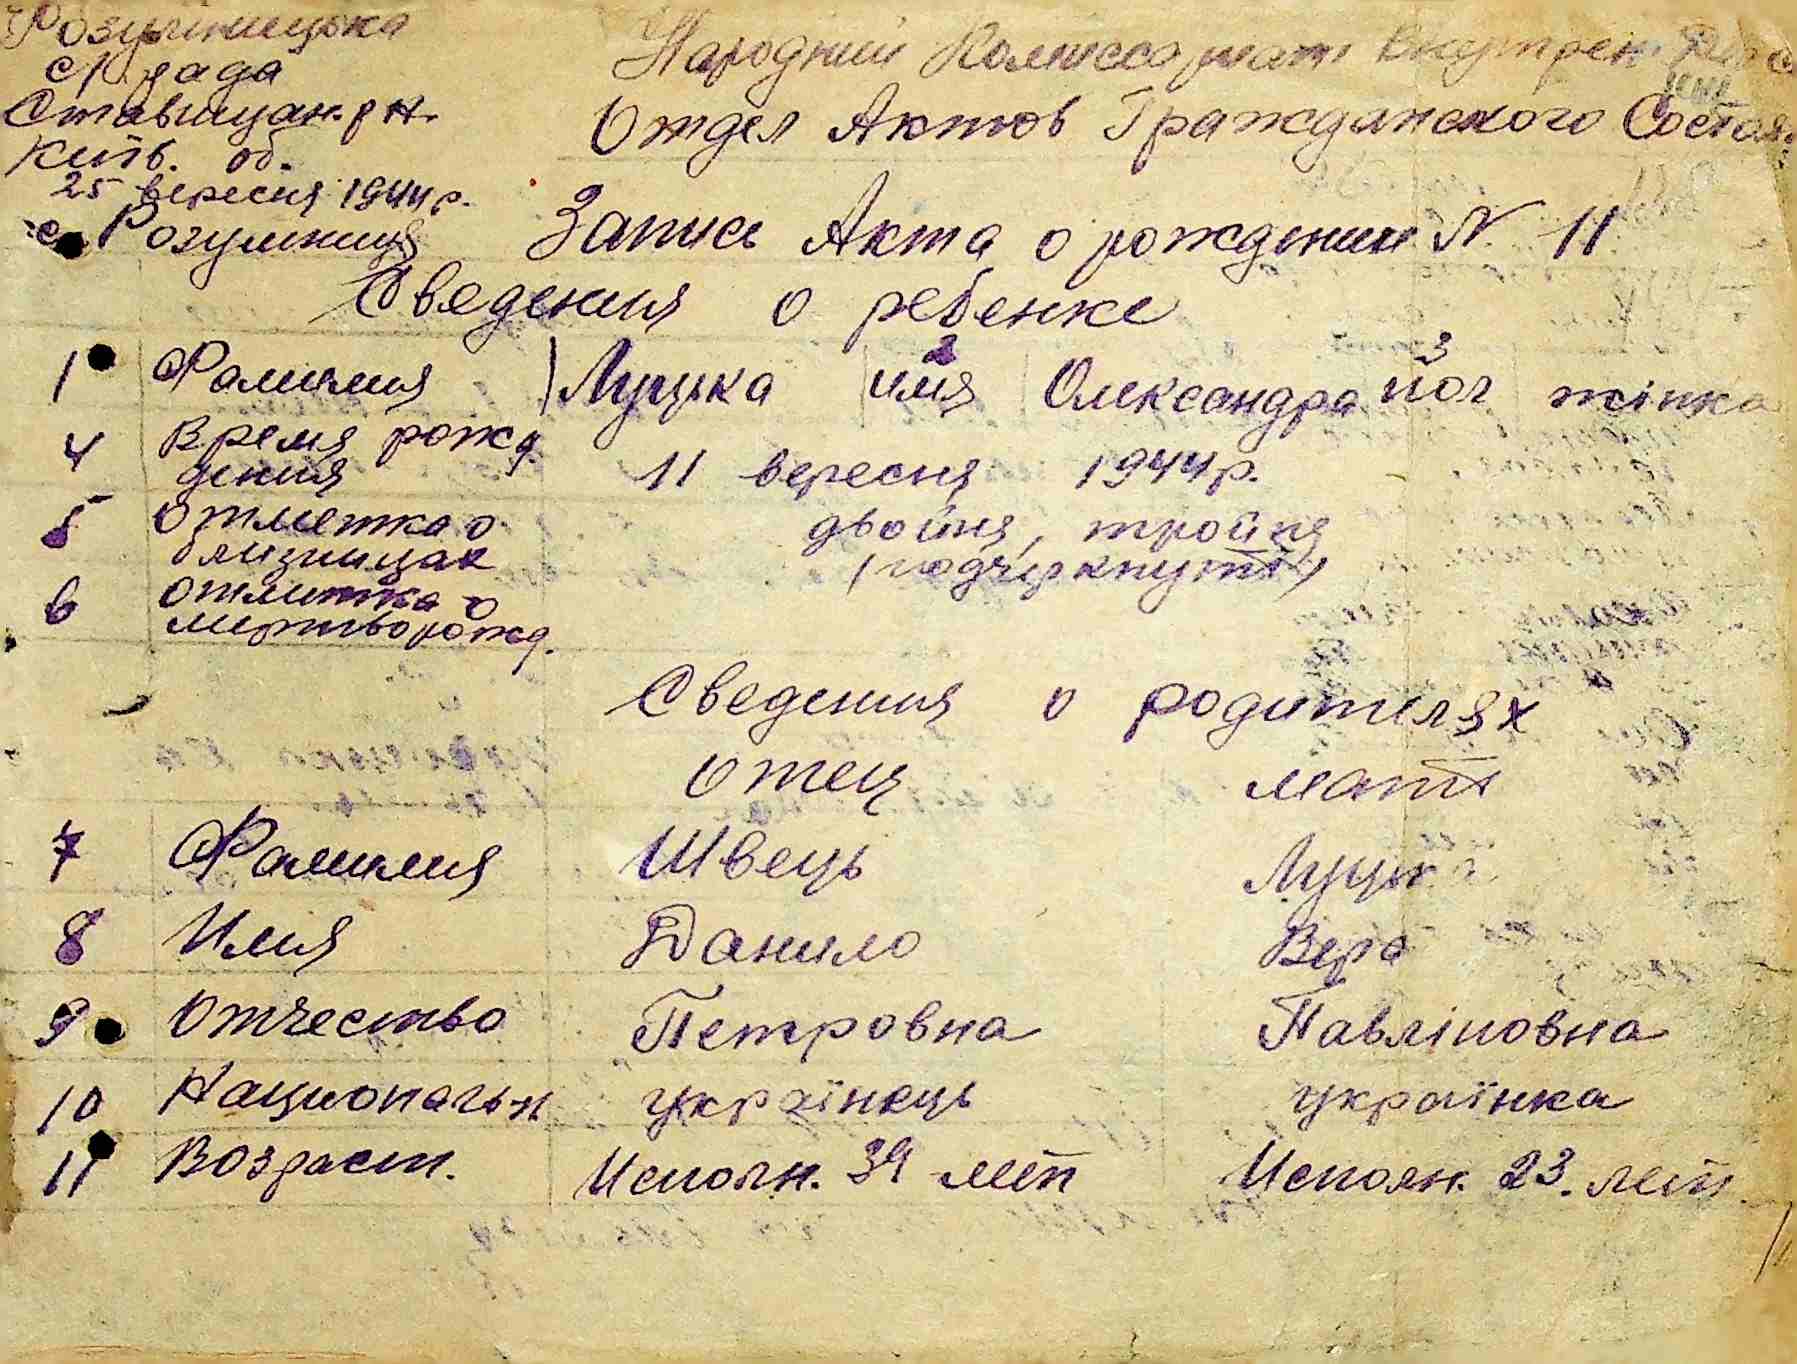 Розумницька
с/рада
Ставищан. р-н.
Київ. об.
25 вересня 1944 р.
с. Розумниця
Народний Комиссариат Внутрен
Отдел Актов Гражданского Состоя
Запись Акта о рождении N 11
Сведения о ребенке
1 Фамилия Луцька 2 имя Олександра 3 пол жінка
4 Время рожд
дения 11 вересня 1944 р.
5 Отметка о
близницах двойня, тройня
(подчеркнуть)
6 отметка о
мертворожд.
Сведения о родителях
Отец мать
7 Фамилия Швець Луцька
8 Имя Данило Вера
9 Отчество Петровна Павліновна
10 Национальн українець українка
11 Возраст. Исполн. 39 літ Исполн. 23. літ